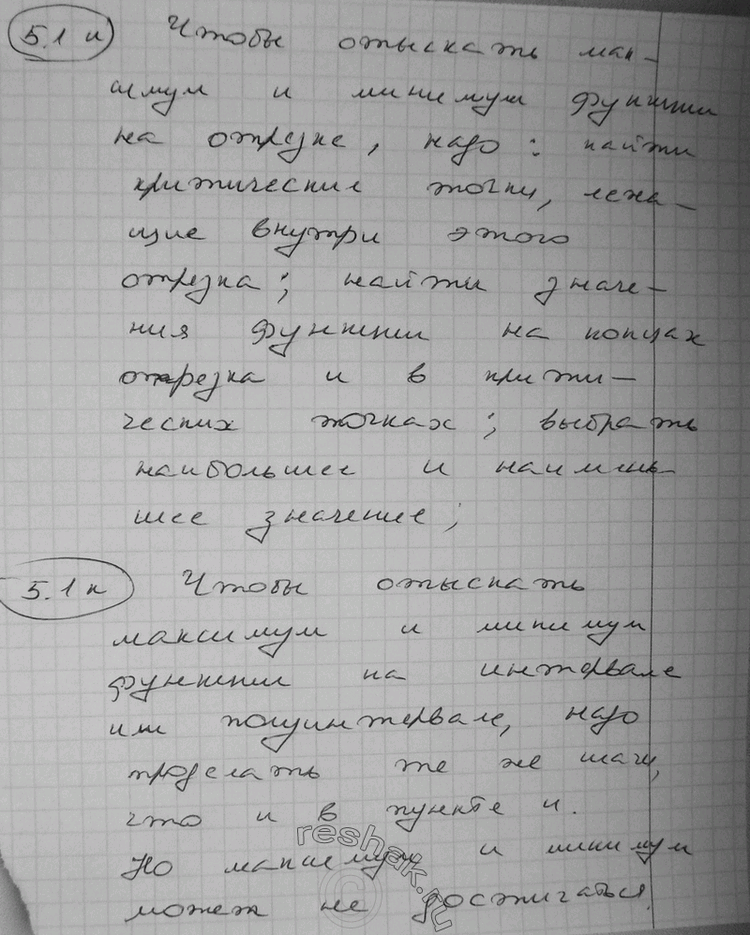 5.1 и Чтобы отыскать мак-
симум и минимум функции
на отрезке, надо: найти
критические точки, лежа-
щие внутри этого
отрезка; найти значе-
ния функции на концах
отрезка и в крити-
ческих точках; выбрать
наибольшее и наимень-
шее значение;
5.1 к Чтобы отыскать
максимум и минимум
функции на интервале
или полуинтервале, надо
проделать те же шаги,
что и в пункте и.
Но максимум и минимум
может не достигаться.
reshak.ru